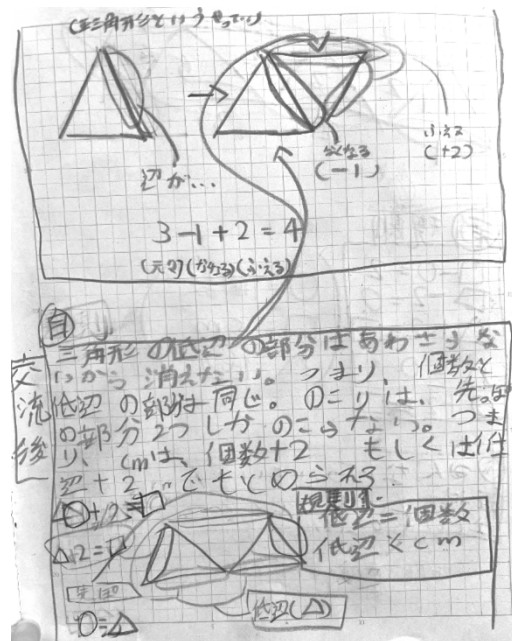 (正三角形というせってい)
辺が…
なくなる
(-1)
ふえる
(+2)
3-1+2=4
(元の)(かさなる)(ふえる)
自
交流後
三角形の低辺の部分はあわさらな
いから消えない。つまり、個数と
低辺の部分は同じ。のこりは、先っぽ
の部分2つしかのこらない。つま
り、cmは、個数+2 もしくは低
辺+2 でもとめられる。
○+2=□
△+2=□
規則
低辺=個数
低辺<cm
○=△
低辺(△)